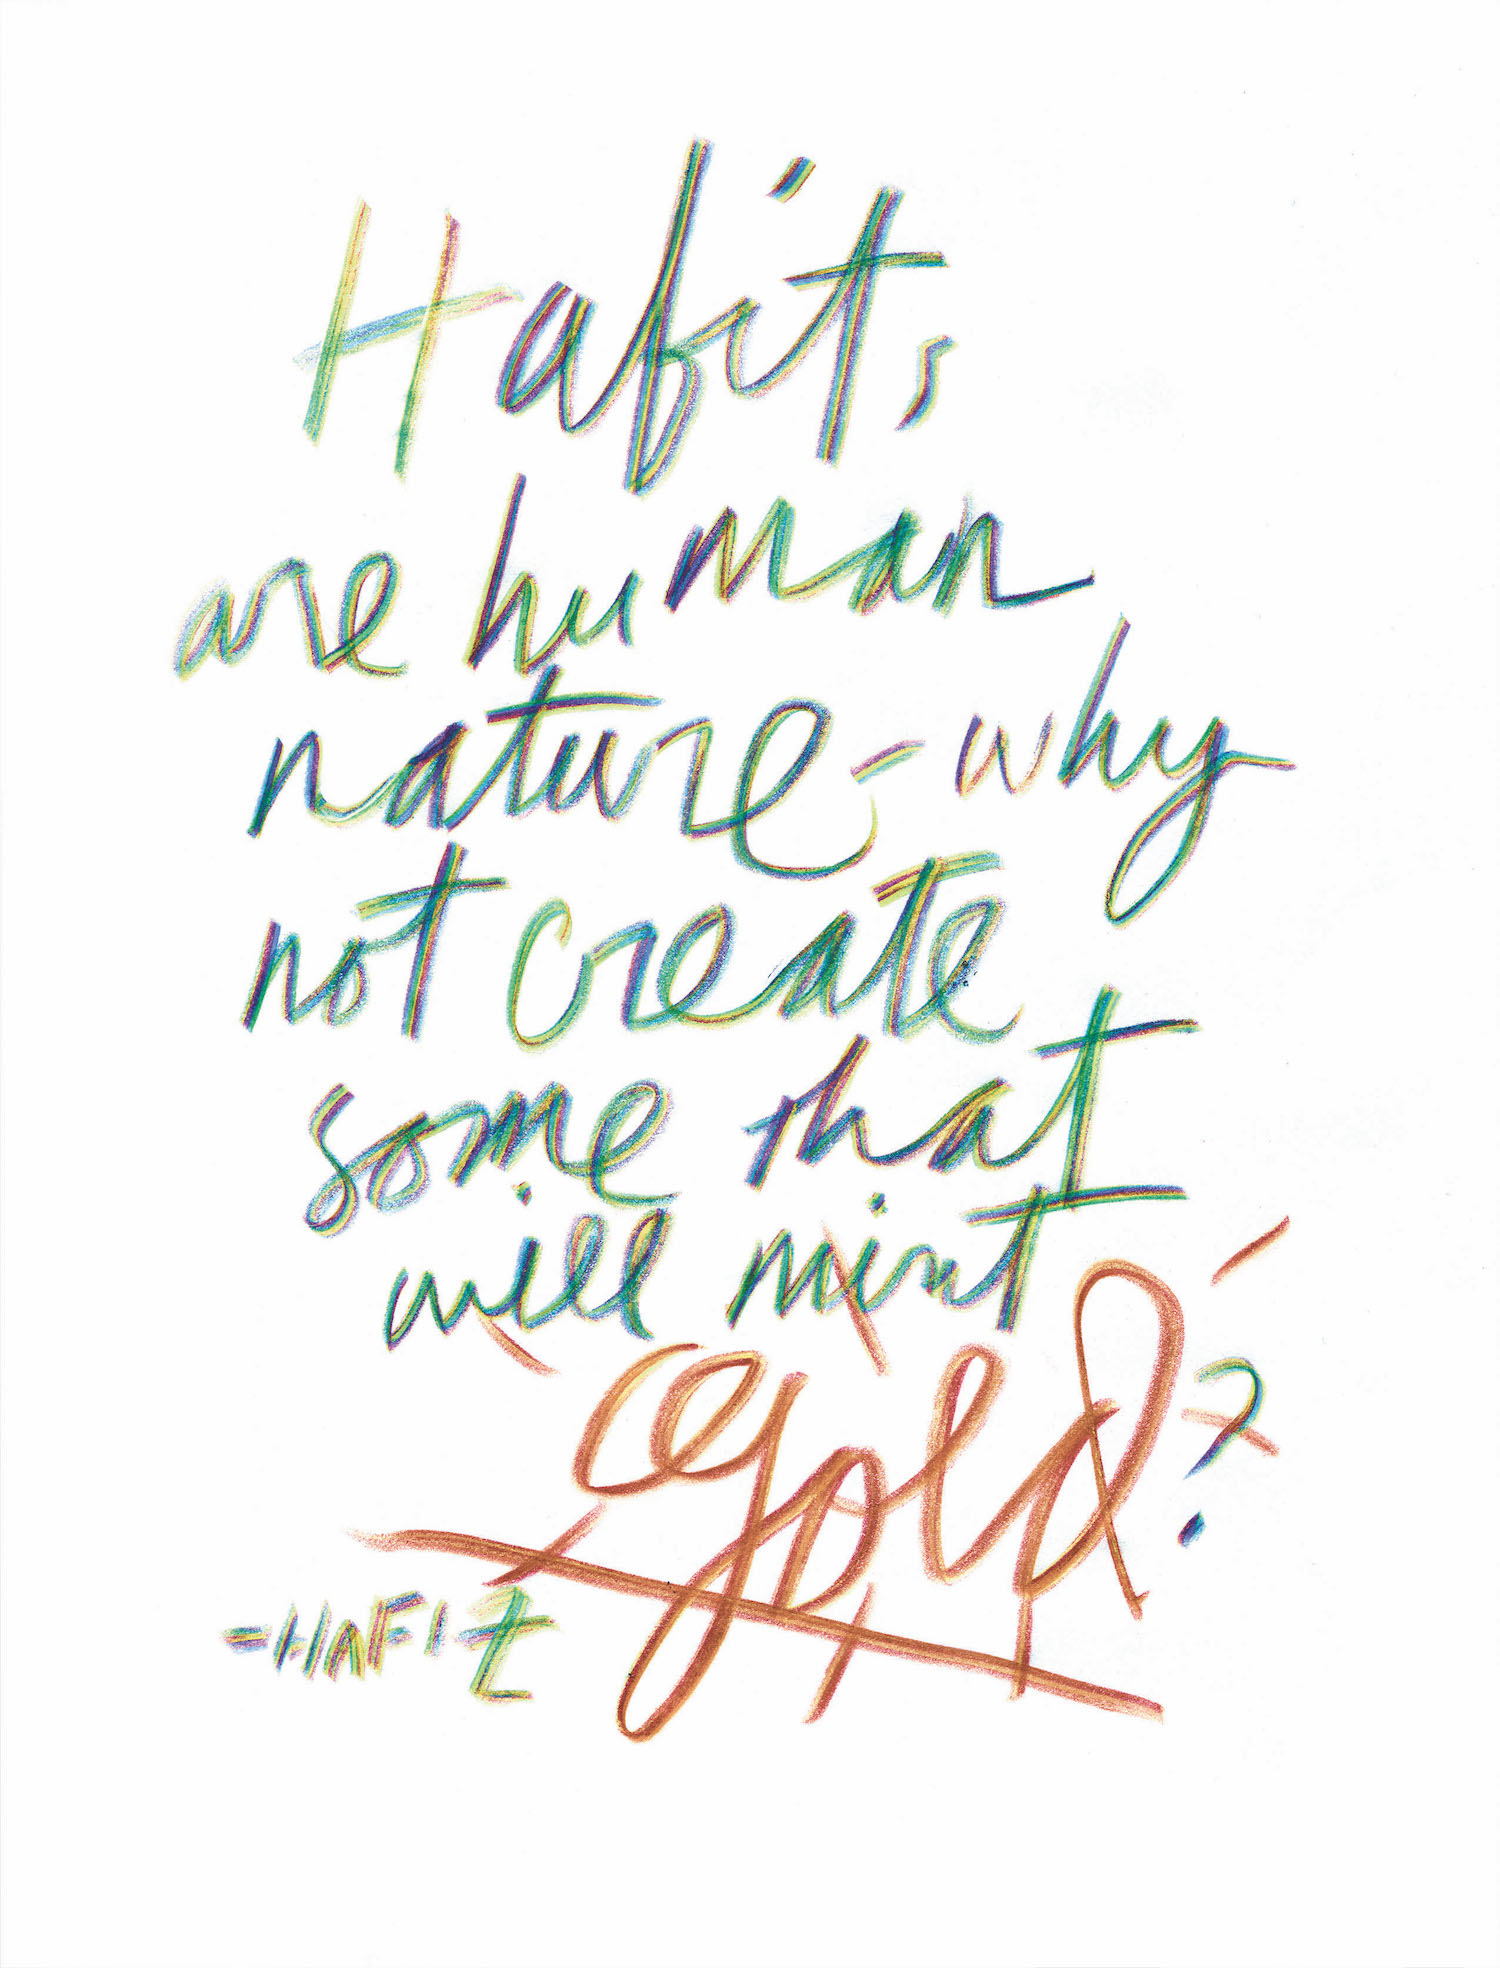 Habits
are human
nature - why
not create
some that
will mint
gold?
- HAFIZ